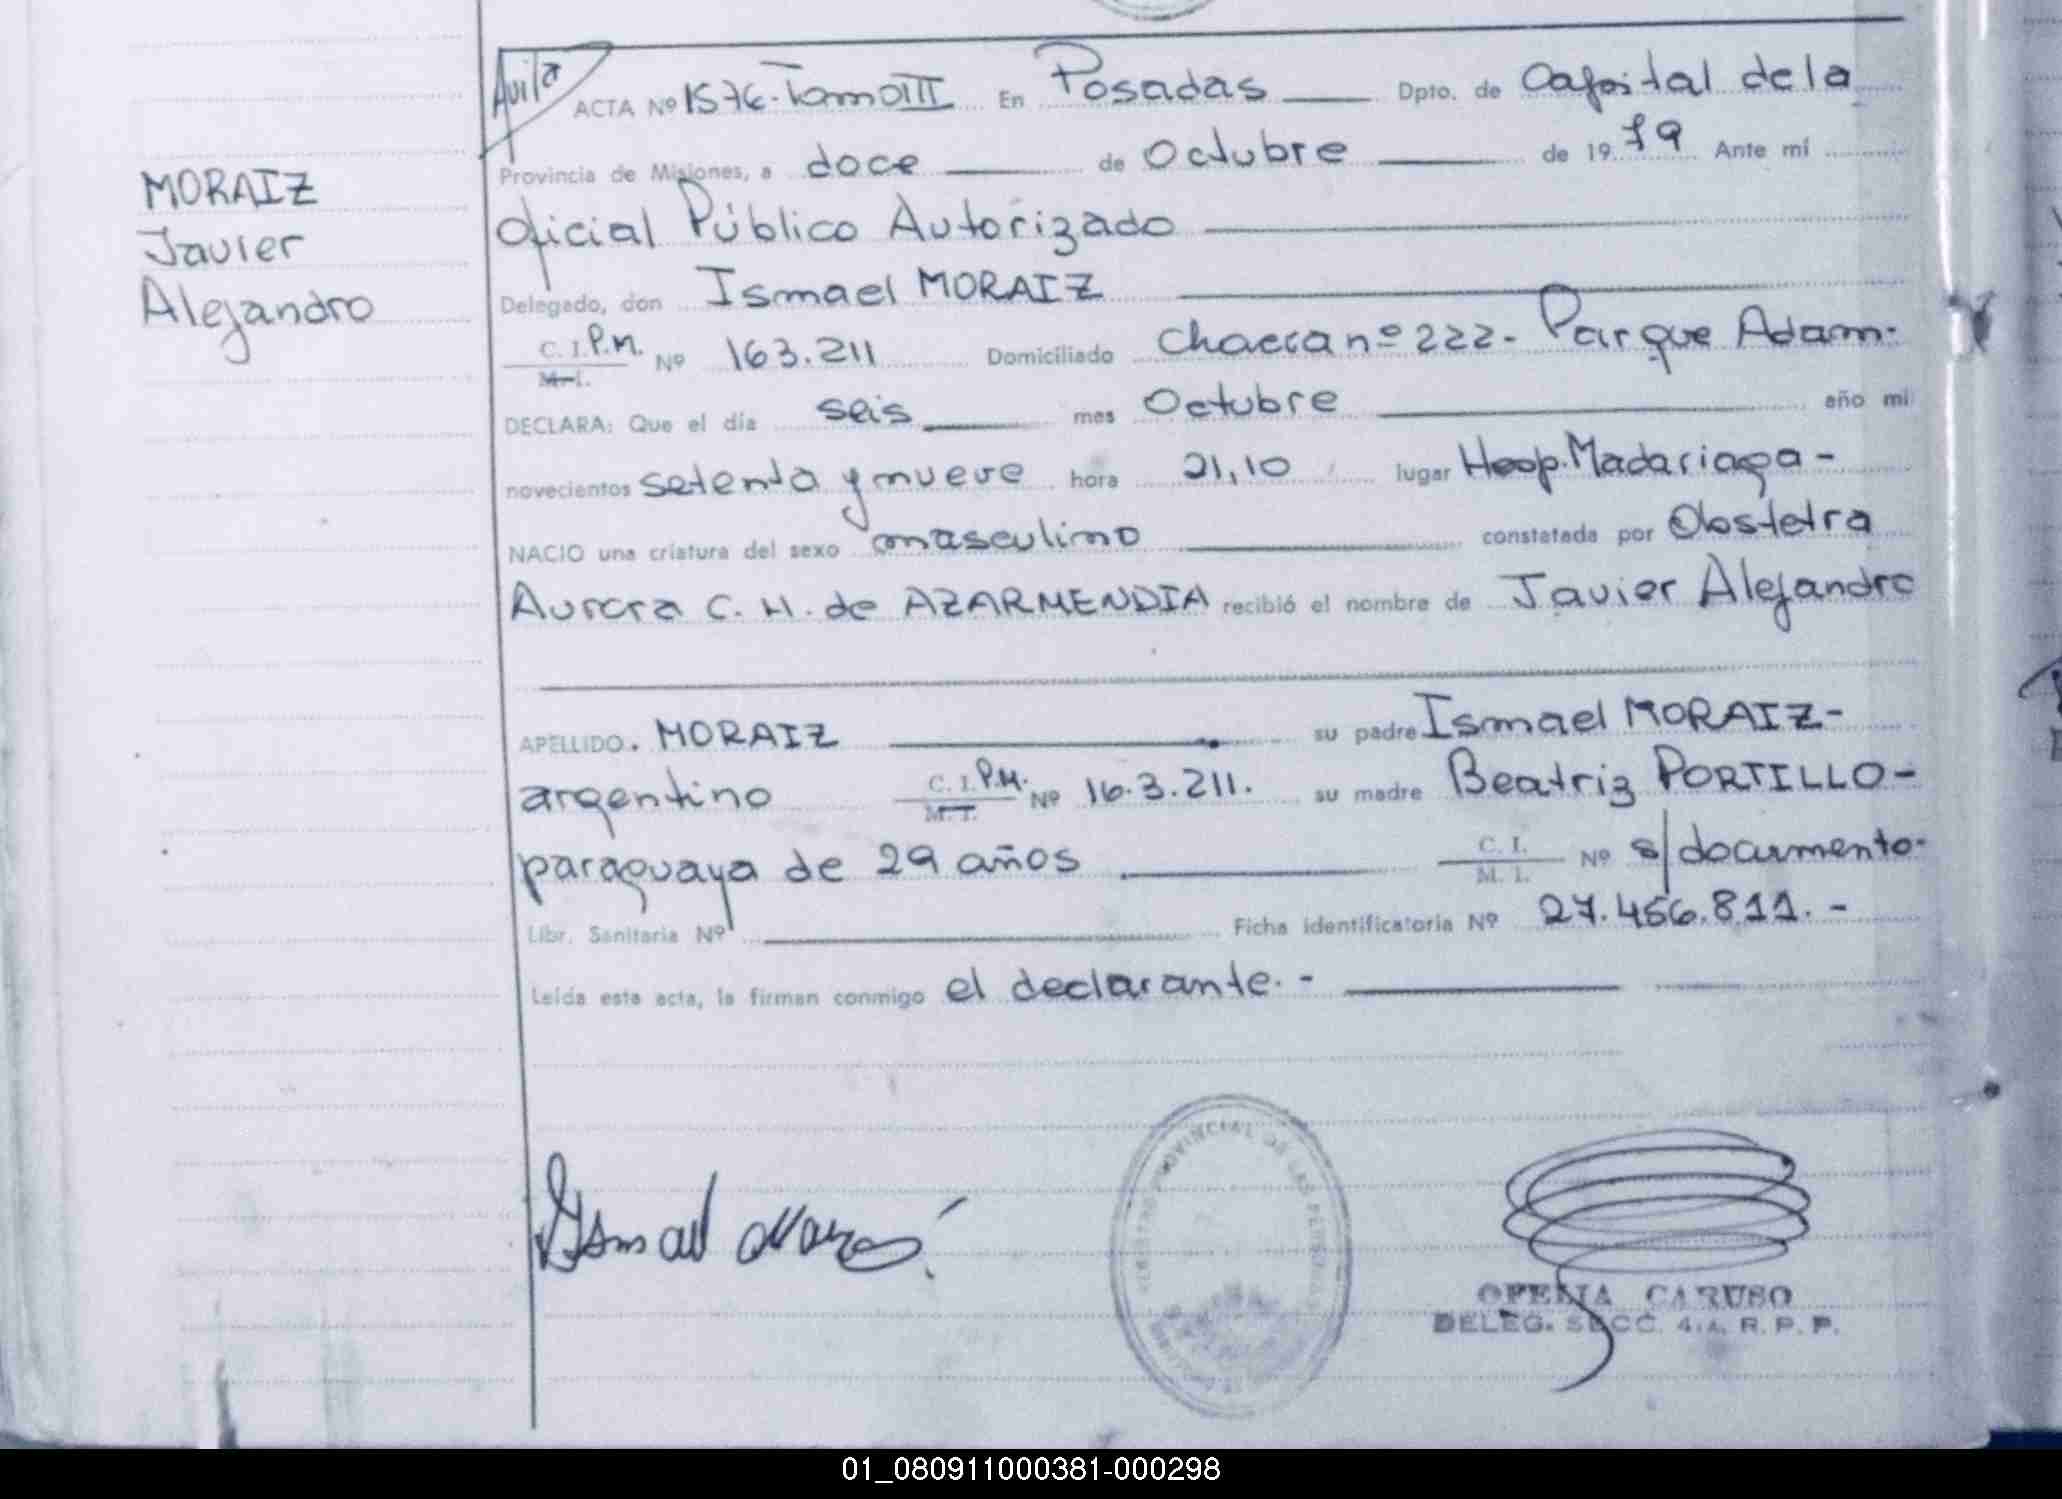 Avila
ACTA Nº 1576-Tomo III En Posadas Dpto. de Capital de la
Provincia de Misiones, a doce de Octubre de 1979 Ante mí
MORAIZ
Javier
Alejandro
Oficial Público Autorizado
Delegado, don Ismael MORAIZ
C. I. P.M. Nº 163.211 Domiciliado Chacra nº 222- Parque Adam-
M. I.
DECLARA: Que el día seis mes Octubre año mi
novecientos setenta y nueve hora 21,10 lugar Hosp. Madariaga -
NACIO una criatura del sexo masculino constatada por Obstetra
Aurora C. H. de AZARMENDIA recibió el nombre de Javier Alejandro
APELLIDO. MORAIZ su padre Ismael MORAIZ-
argentino C. I. P.M. Nº 16.3.211. su madre Beatriz PORTILLO-
M. I.
paraguaya de 29 años C. I. Nº s/documento-
M. I.
Libr. Sanitaria Nº Ficha identificatoria Nº 27.456.811.-
Leída esta acta, la firman conmigo el declarante.-
Ismael
REGISTRO PROVINCIAL DE LAS PERSONAS
OFELIA CARUSO
DELEG. SECC. 4.A. R. P. P.
01_080911000381-000298